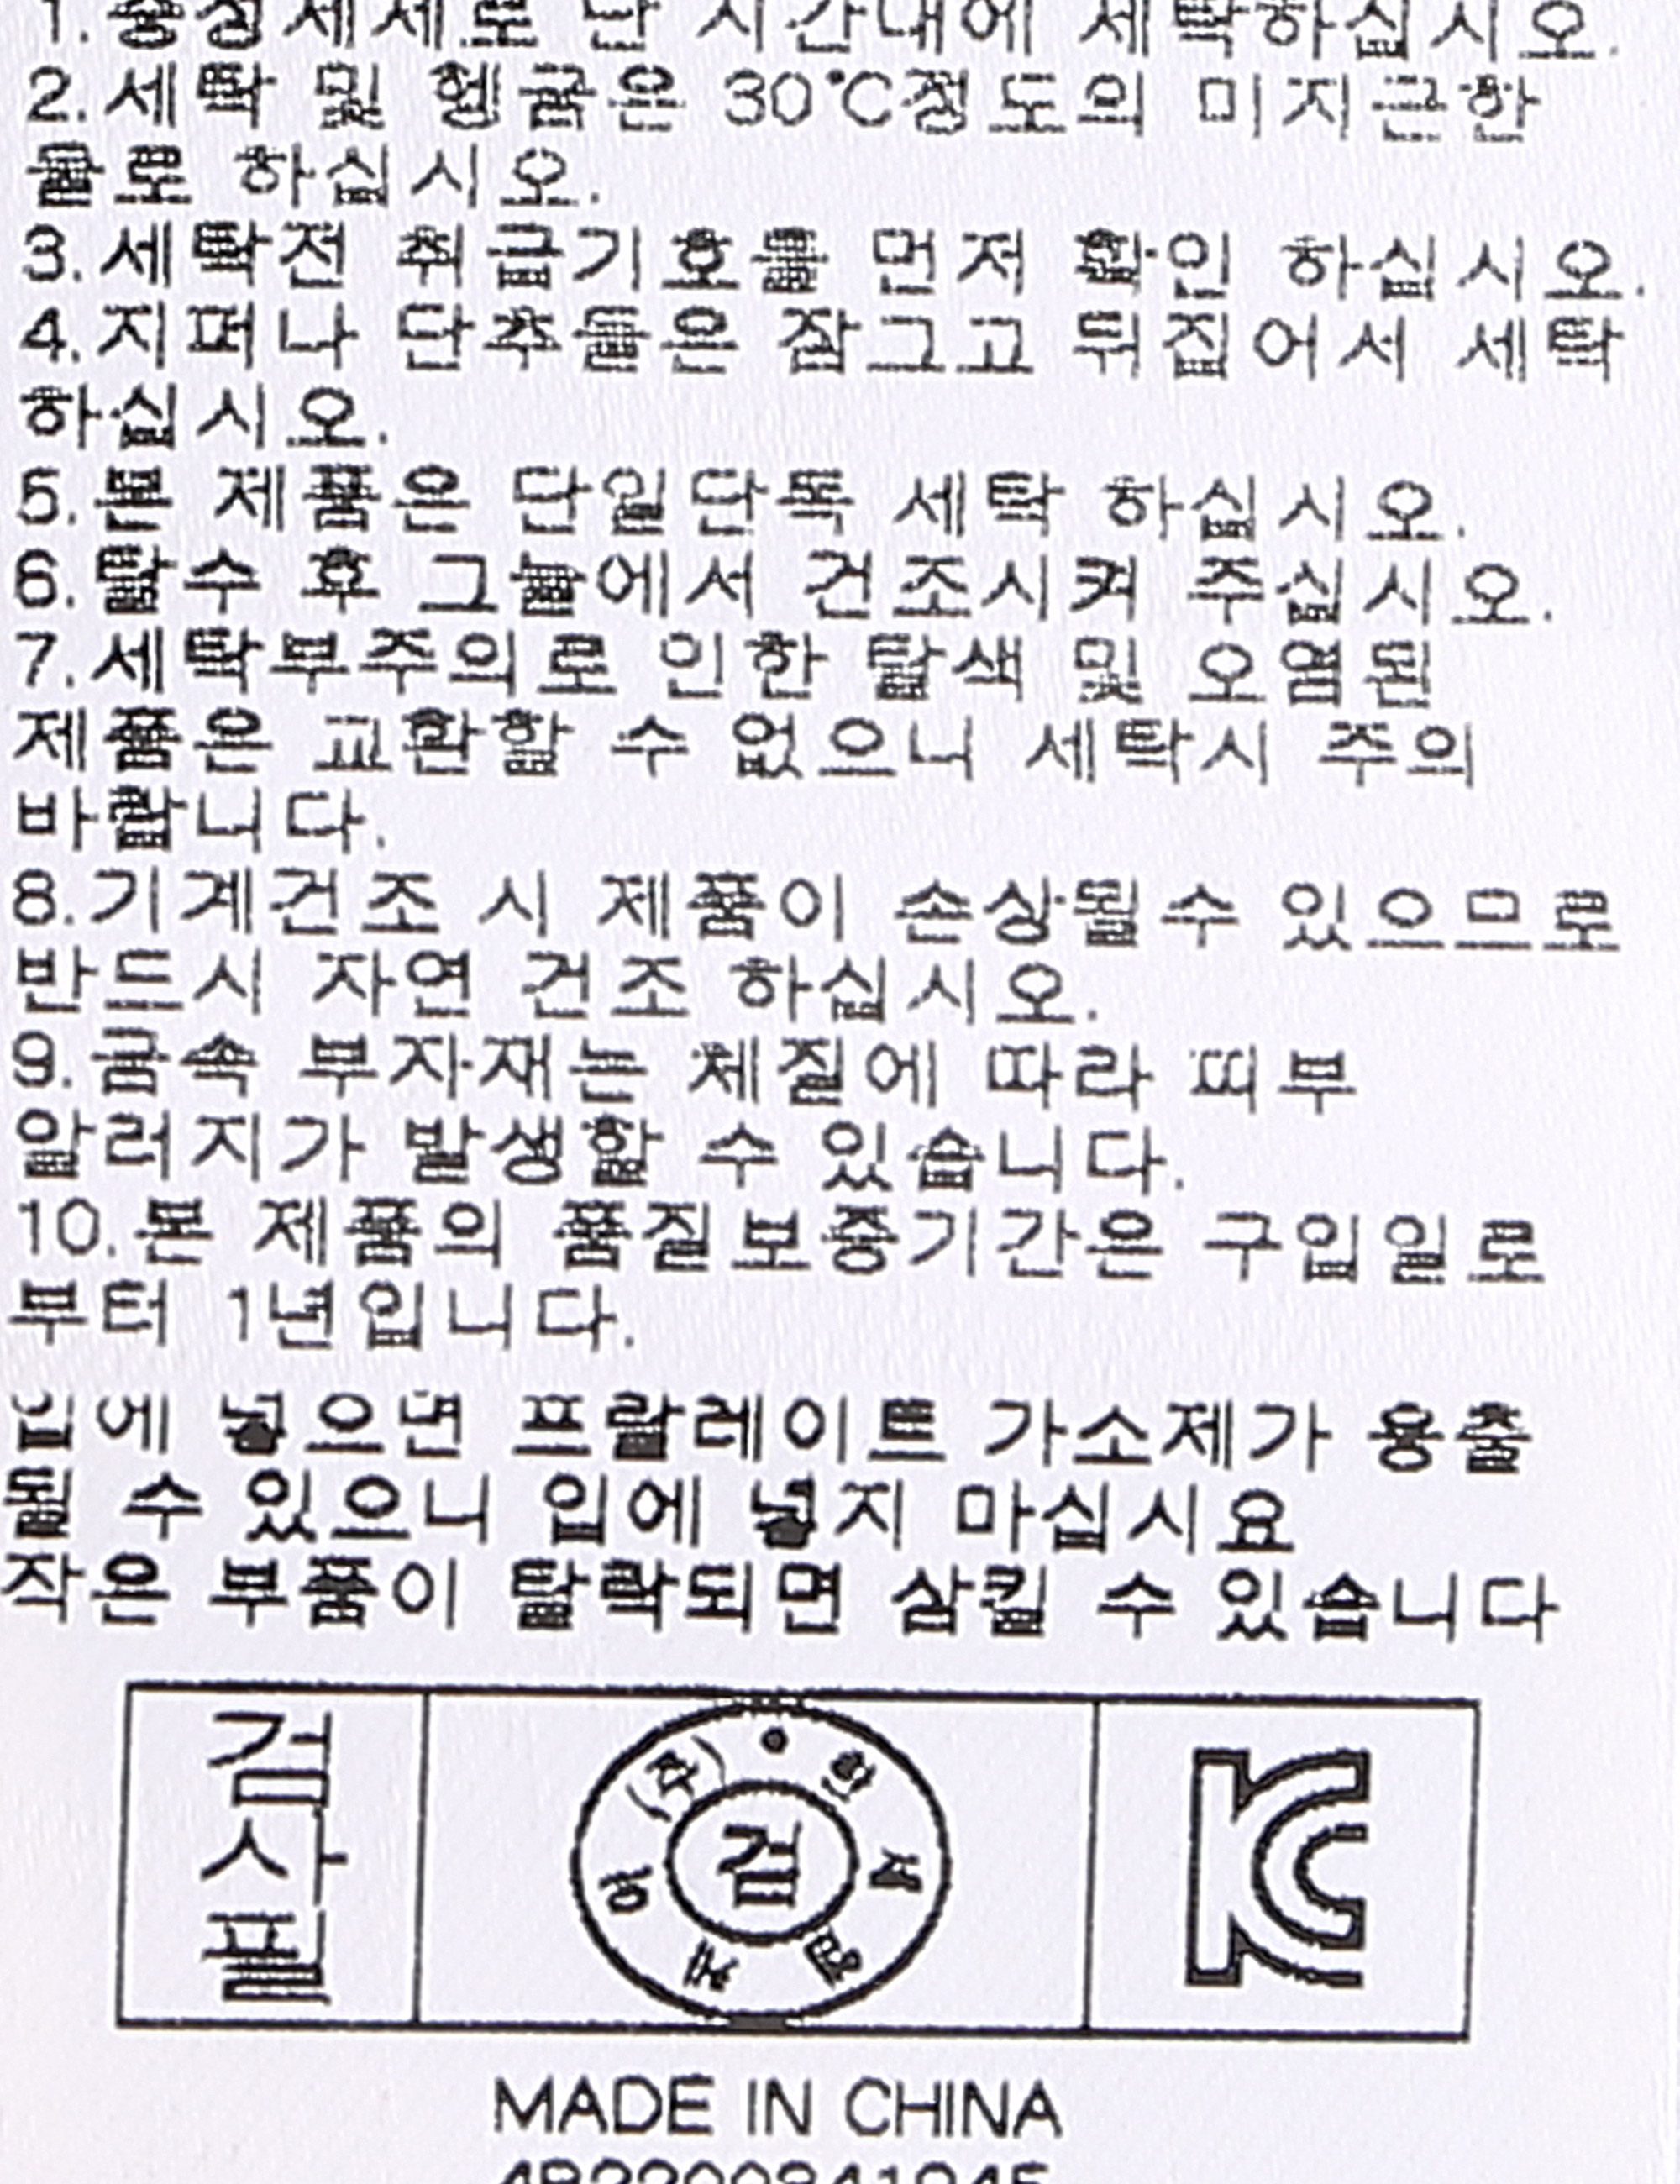 1.중성세제로 단 시간내에 세탁하십시오.
2.세탁 및 헹굼은 30℃정도의 미지근한
물로 하십시오.
3.세탁전 취급기호를 먼저 확인 하십시오.
4.지퍼나 단추들은 잠그고 뒤집어서 세탁
하십시오.
5.본 제품은 단일단독 세탁 하십시오.
6.탈수 후 그늘에서 건조시켜 주십시오.
7.세탁부주의로 인한 탈색 및 오염된
제품은 교환할 수 없으니 세탁시 주의
바랍니다.
8.기계건조 시 제품이 손상될수 있으므로
반드시 자연 건조 하십시오.
9.금속 부자재는 체질에 따라 피부
알러지가 발생할 수 있습니다.
10.본 제품의 품질보증기간은 구입일로
부터 1년입니다.
입에 넣으면 프탈레이트 가소제가 용출
될 수 있으니 입에 넣지 마십시요
작은 부품이 탈락되면 삼킬 수 있습니다
검
사
필
(주)
검
KC
MADE IN CHINA